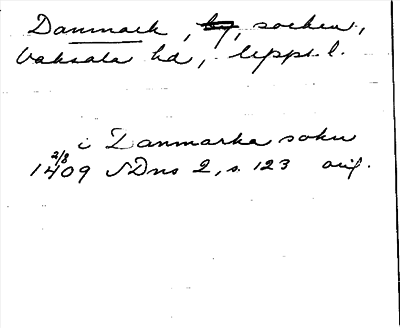 Danmark, by, socken,
Vaksala hd, Uppl.
i Danmarka sokn
2/8
1409 SDns 2, s. 123 orig.